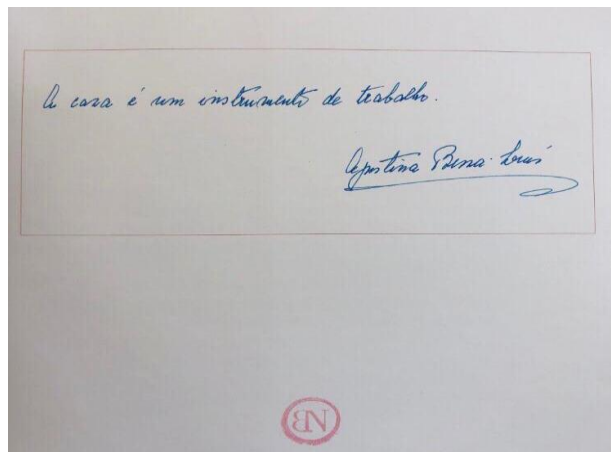 A casa é um instrumento de trabalho.
Agustina Bessa-Luís
BN